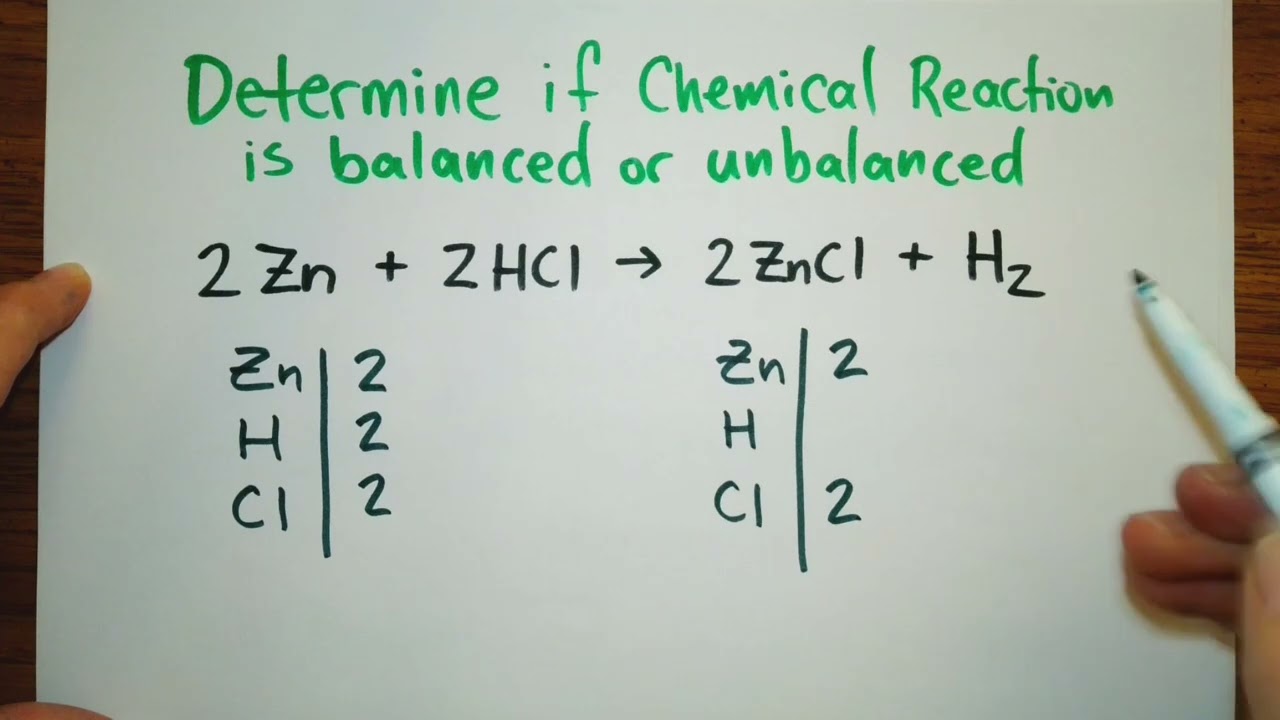 Determine if Chemical Reaction
is balanced or unbalanced
2 Zn + 2HCl → 2ZnCl + H₂
Zn | 2 Zn | 2
H | 2 H |
Cl | 2 Cl | 2